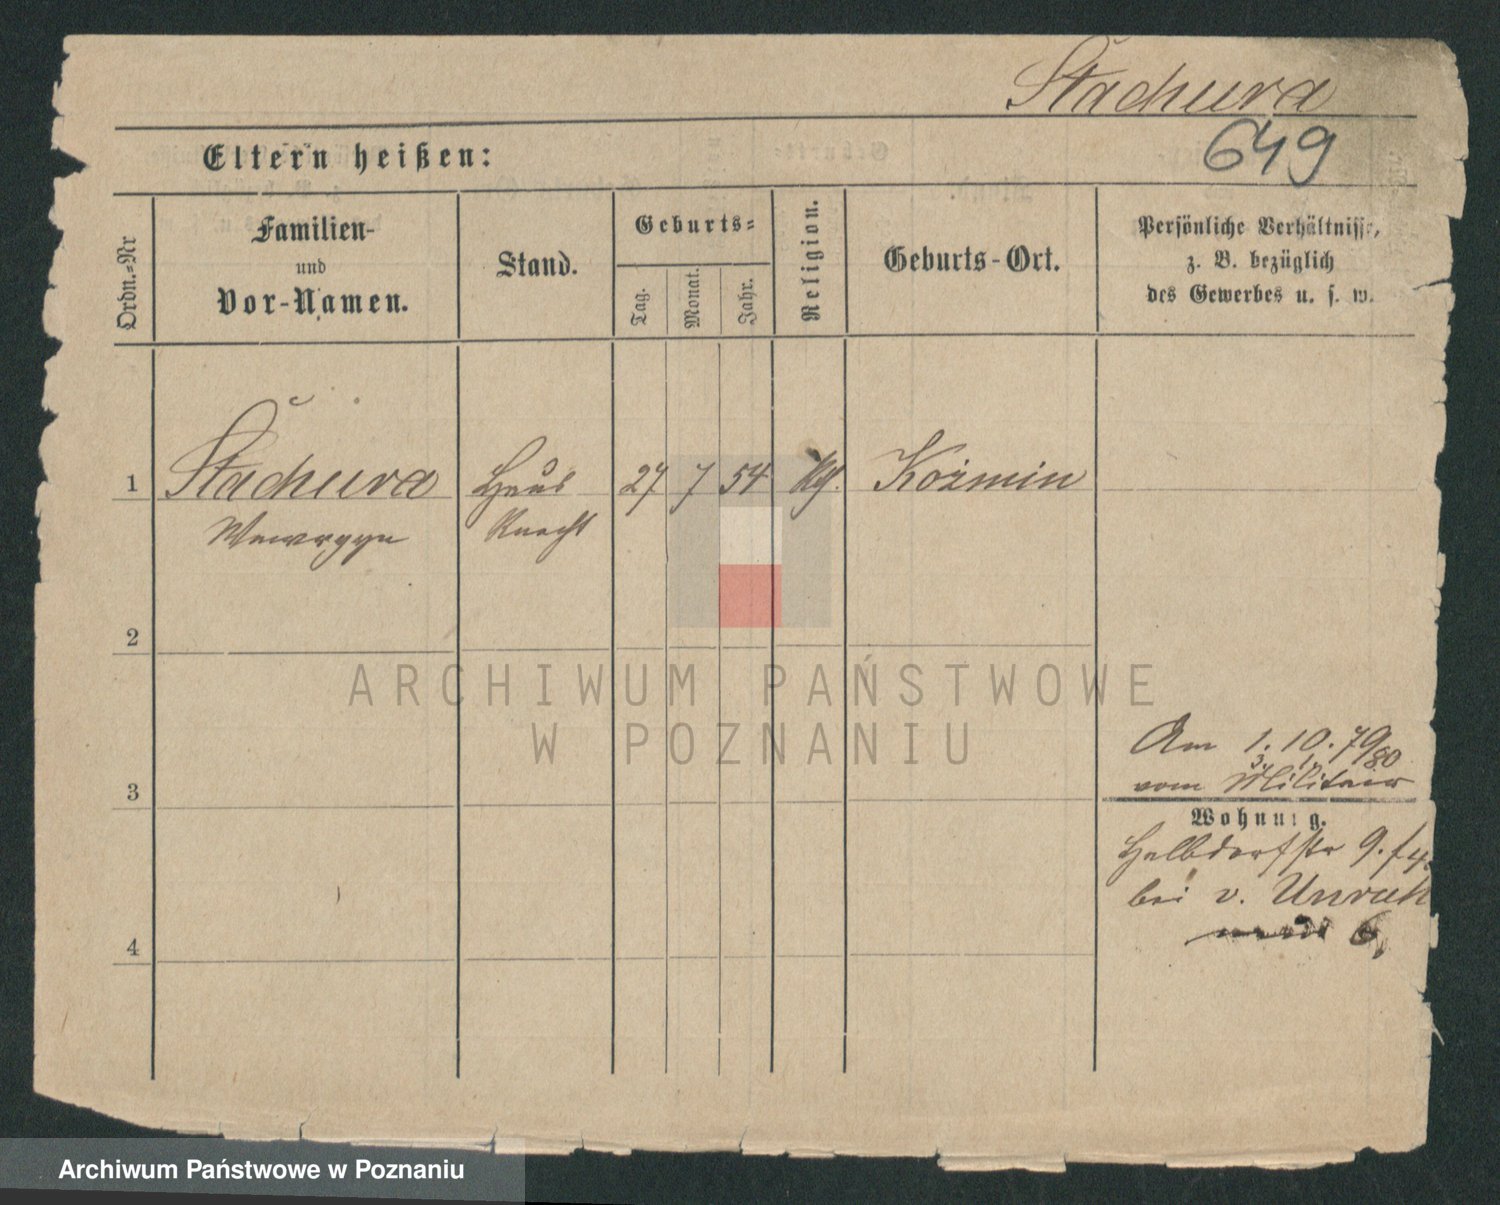 Stachura
649
Eltern heißen:
Ordn.=Nr
Familien-
und
Vor-Namen.
Stand.
Geburts=
Tag.
Monat.
Jahr.
Religion.
Geburts-Ort.
Persönliche Verhältnisse,
z. B. bezüglich
des Gewerbes u. s. w.
1 Stachura Haus 27 7 54 Kth. Kożmin
Wawrzyn Knecht
2
ARCHIWUM PAŃSTWOWE
W POZNANIU
Am 1. 10. 79
3. 1. 80
vom Militair
3
Wohnung.
Halbdorfstr 9.
bei v. Unruh
4
6
Archiwum Państwowe w Poznaniu